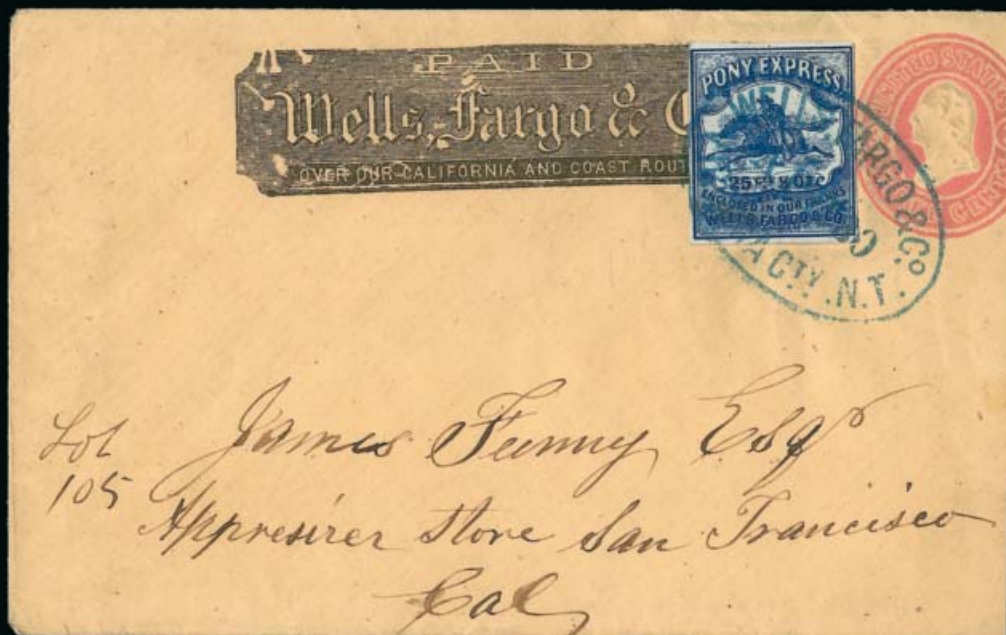 PAID
Wells, Fargo & C
OVER OUR CALIFORNIA AND COAST ROUT
PONY EXPRESS
WELL
25 ½ OZ
ENCLOSED IN OUR FRANKS
WELLS, FARGO & CO.
UNITED STATES
CENT
FARGO & Co
A CTY. N.T.
Lot
105
James Funny Esqr
Appresirer Store San Francisco
Cal